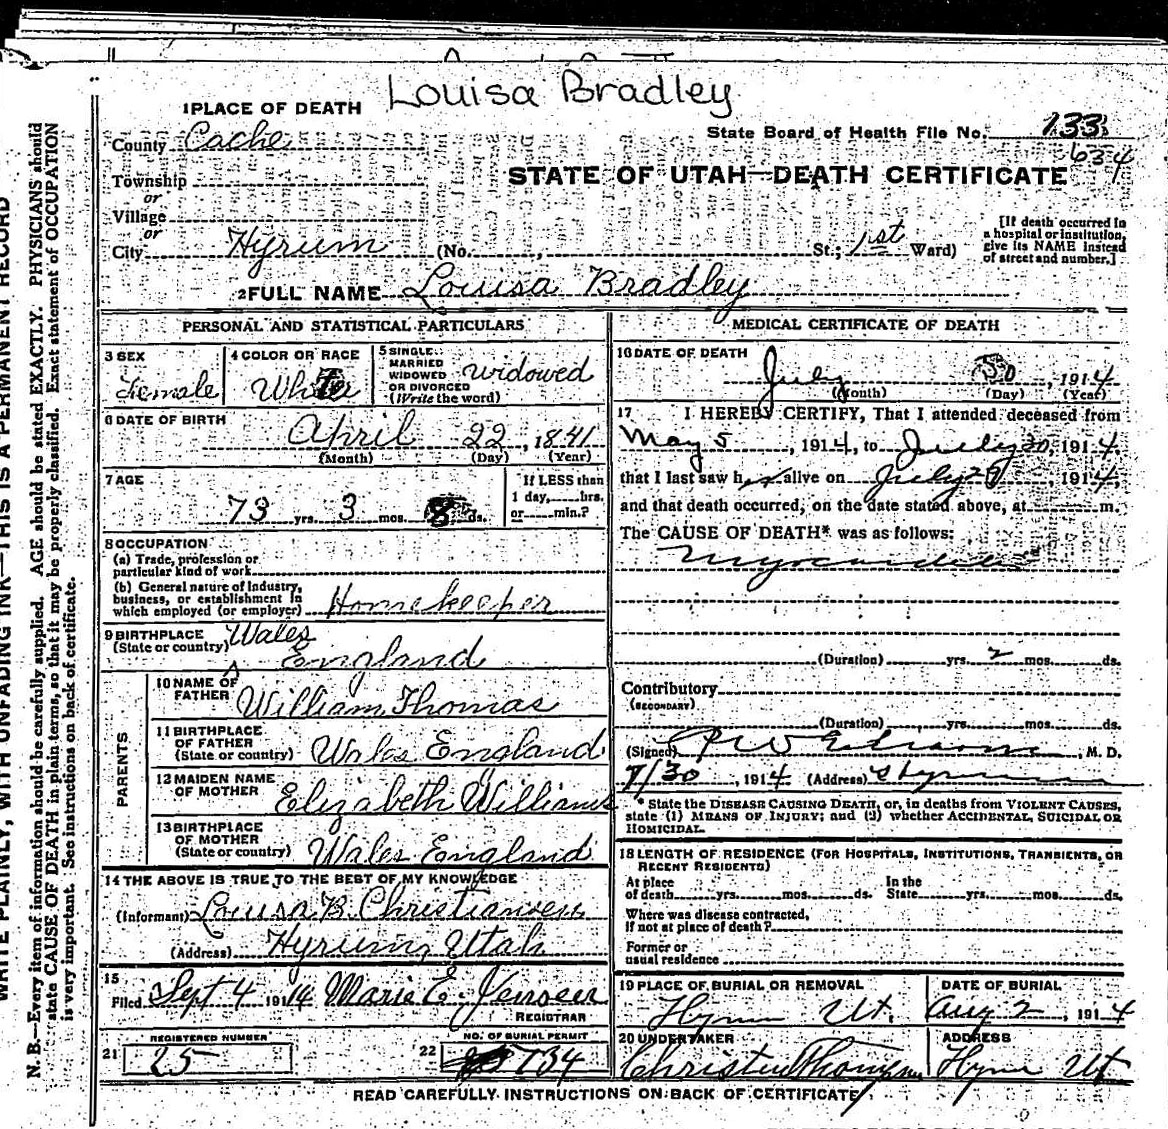 Louisa Bradley
1 PLACE OF DEATH
County Cache
State Board of Health File No. 133
634
Township
or
Village
or
City Hyrum (No. St.; 1st Ward)
STATE OF UTAH—DEATH CERTIFICATE
[If death occurred in
a hospital or institution,
give its NAME instead
of street and number.]
2 FULL NAME Louisa Bradley
PERSONAL AND STATISTICAL PARTICULARS
3 SEX
Female
4 COLOR OR RACE
White
5 SINGLE
MARRIED
WIDOWED
OR DIVORCED
(Write the word)
widowed
6 DATE OF BIRTH
April 22, 1841
(Month) (Day) (Year)
7 AGE
73 yrs. 3 mos. 8 ds.
If LESS than
1 day, hrs.
or min.?
8 OCCUPATION
(a) Trade, profession or
particular kind of work
(b) General nature of industry,
business, or establishment in
which employed (or employer) Homekeeper
9 BIRTHPLACE
(State or country) Wales
England
PARENTS
10 NAME OF
FATHER William Thomas
11 BIRTHPLACE
OF FATHER
(State or country) Wales England
12 MAIDEN NAME
OF MOTHER Elizabeth Williams
13 BIRTHPLACE
OF MOTHER
(State or country) Wales England
14 THE ABOVE IS TRUE TO THE BEST OF MY KNOWLEDGE
(Informant) Louisa B. Christiansen
(Address) Hyrum, Utah
15
Filed Sept 4 1914 Marie E. Jensen
REGISTRAR
REGISTERED NUMBER
21 25
NO. OF BURIAL PERMIT
22 734
MEDICAL CERTIFICATE OF DEATH
16 DATE OF DEATH
July 30, 1914
(Month) (Day) (Year)
17 I HEREBY CERTIFY, That I attended deceased from
May 5, 1914, to July 30, 1914
that I last saw her alive on July 29, 1914
and that death occurred, on the date stated above, at m.
The CAUSE OF DEATH* was as follows:
Myocarditis
(Duration) yrs. 2 mos. ds.
Contributory
(SECONDARY)
(Duration) yrs. mos. ds.
(Signed) M. D.
7/30, 1914 (Address) Hyrum
* State the DISEASE CAUSING DEATH, or, in deaths from VIOLENT CAUSES,
state (1) MEANS OF INJURY; and (2) whether ACCIDENTAL, SUICIDAL OR
HOMICIDAL.
18 LENGTH OF RESIDENCE (FOR HOSPITALS, INSTITUTIONS, TRANSIENTS, OR
RECENT RESIDENTS)
At place
of death yrs. mos. ds. In the
State yrs. mos. ds.
Where was disease contracted,
if not at place of death?
Former or
usual residence
19 PLACE OF BURIAL OR REMOVAL
Hyrum Ut.
DATE OF BURIAL
Aug 2, 1914
20 UNDERTAKER
ADDRESS
Hyrum Ut
READ CAREFULLY INSTRUCTIONS ON BACK OF CERTIFICATE
WRITE PLAINLY, WITH UNFADING INK—THIS IS A PERMANENT RECORD
N. B.—Every item of information should be carefully supplied. AGE should be stated EXACTLY. PHYSICIANS should
state CAUSE OF DEATH in plain terms, so that it may be properly classified. Exact statement of OCCUPATION
is very important. See instructions on back of certificate.